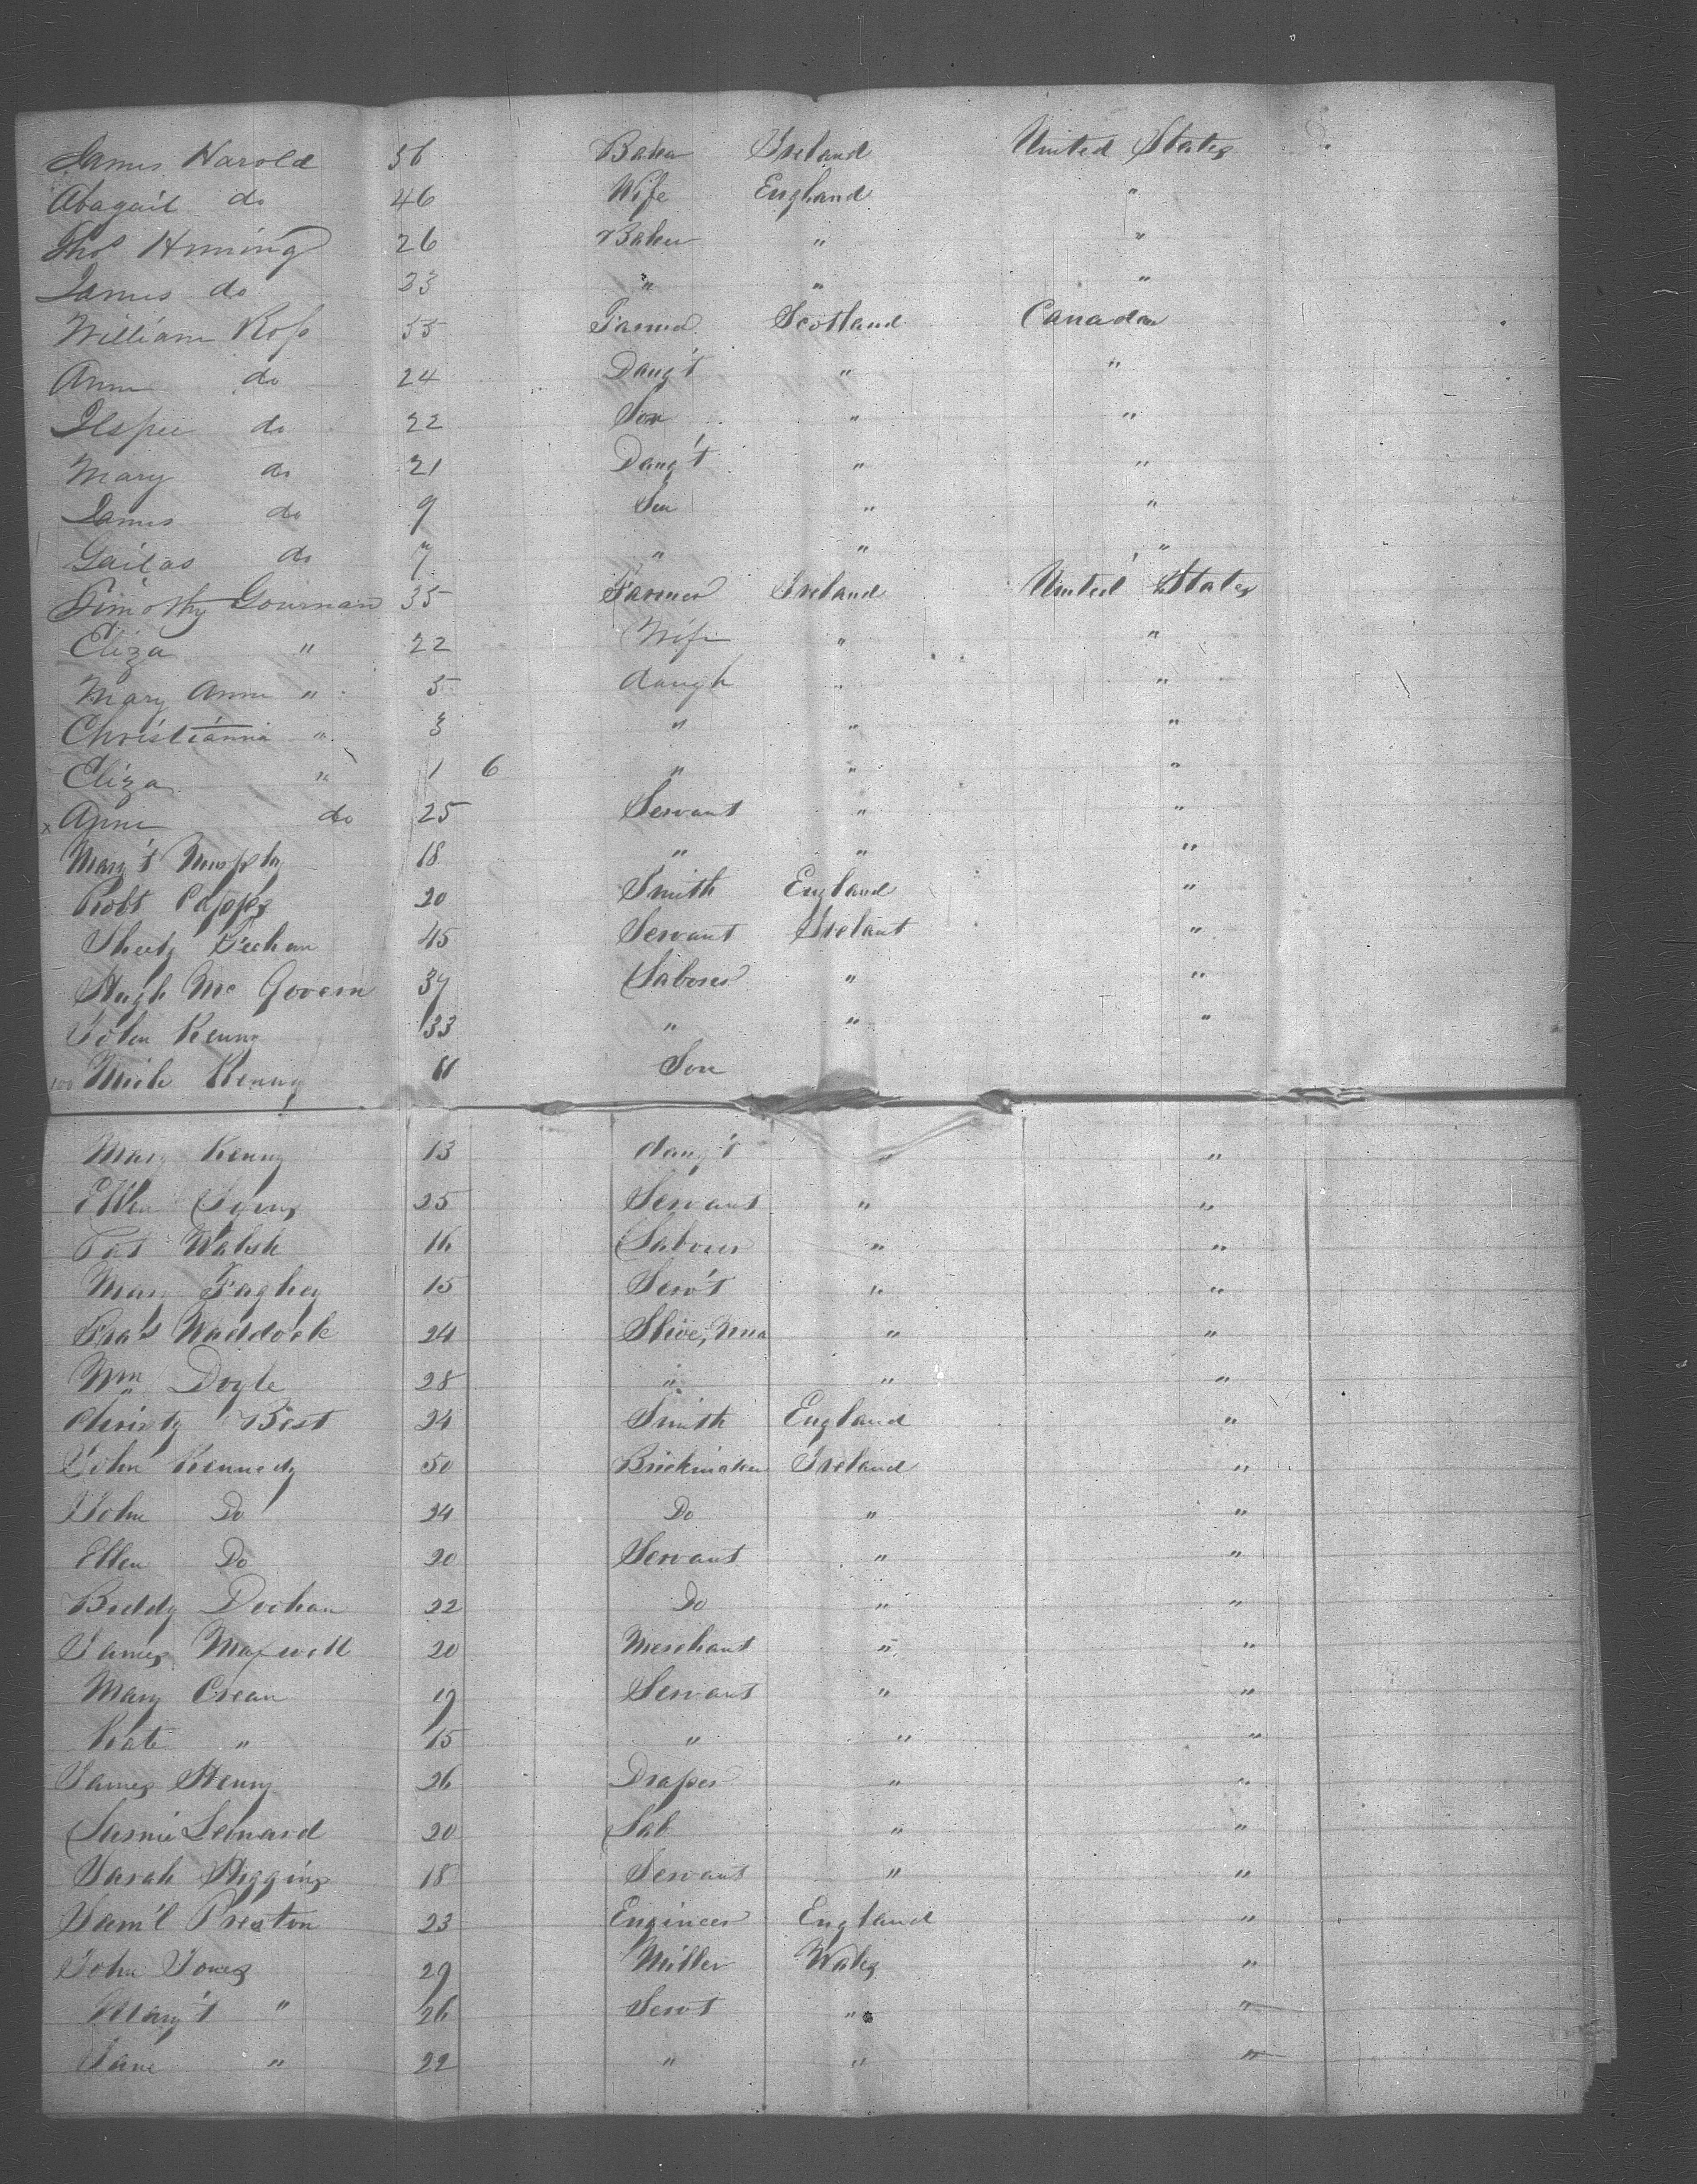 James Harold 56 Baker Ireland United States
Abagail do 46 Wife England "
Thos Hming 26 Baker " "
James do 23 " " "
William Ross 55 Farmer Scotland Canada
Ann do 24 Daug't " "
Ilspie do 22 Son " "
Mary do 21 Daug't " "
James do 9 Son " "
do 7 " " "
Timothy Gournan 35 Farmer Ireland United States
Eliza " 22 Wife " "
Mary Anne " 5 daugh " "
Christianna " 3 " " "
Eliza " 1 6 " " "
x Anne do 25 Servant " "
Marg't Murphy 18 " " "
Robt 20 Smith England "
45 Servant Irelant "
Hugh Mc Govern 37 Laborer " "
John Kenny 33 " " "
100 Mich Kenny 11 Son
Mary Kenny 13 daug't " "
Ellen Lyons 25 Servant " "
Pat Walsh 16 Laborer " "
Mary Faghey 15 Serv't " "
Fras Waddock 24 " "
Wm Doyle 28 " " "
Christy Best 24 Smith England "
John Kennedy 50 Brickmaker Ireland "
John Do 24 Do " "
Ellen Do 20 Servant " "
Biddy Doohan 22 Do " "
James Maxwell 20 Merchant " "
Mary Crean 19 Servant " "
Kate " 15 " " "
James Henry 26 Draper " "
Leonard 20 Lab " "
Sarah Higgins 18 Servant " "
Sam'l Preston 23 Engineer England "
John Jones 29 Miller Wales "
Marg't " 26 Servt " "
Jane " 22 " " "